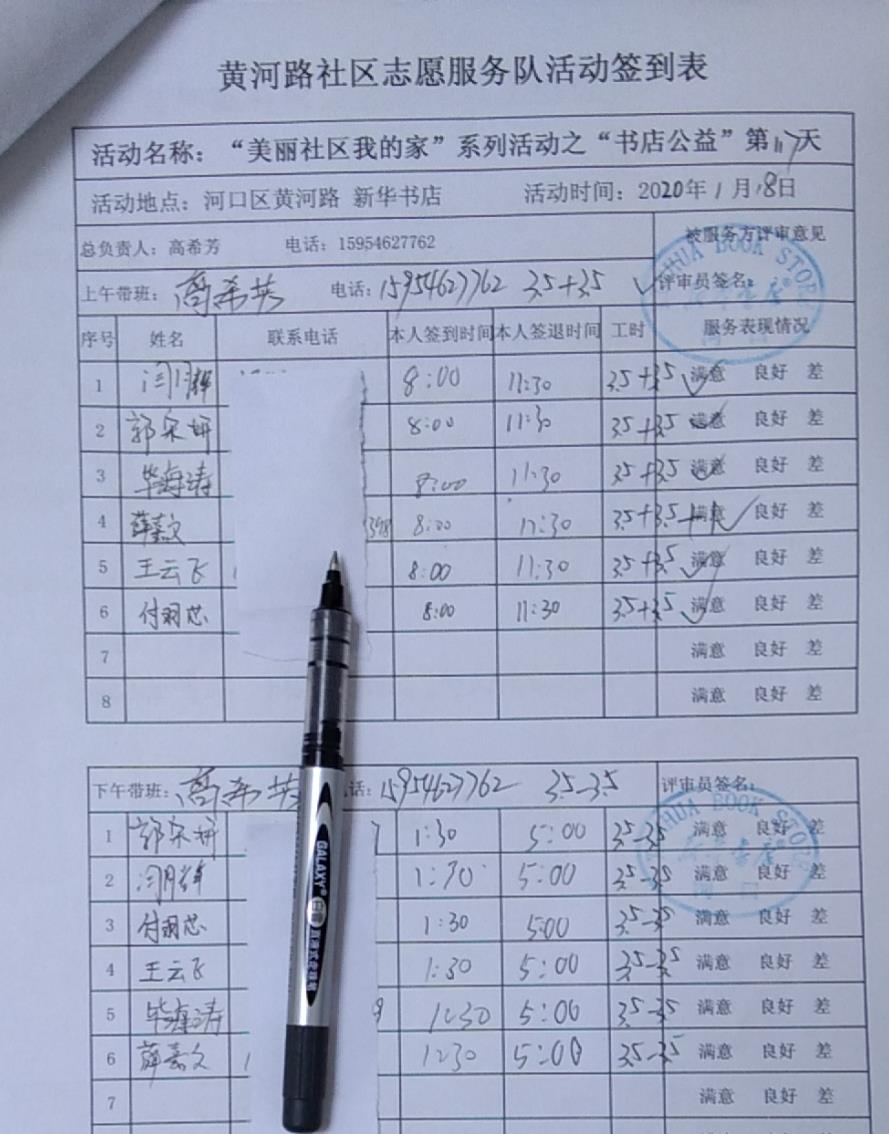 黄河路社区志愿服务队活动签到表
活动名称：“美丽社区我的家”系列活动之“书店公益”第 天
活动地点：河口区黄河路 新华书店 活动时间：2020年1月18日
总负责人：高希芳 电话：15954627762 被服务方评审意见
上午带班：高希芳 电话：15954627762 3.5+3.5 评审员签名：
序号 姓名 联系电话 本人签到时间 本人签退时间 工时 服务表现情况
1 闫月辉 8:00 11:30 3.5+3.5 满意 良好 差
2 郭宋妍 8:00 11:30 3.5+3.5 满意 良好 差
3 毕海涛 8:00 11:30 3.5+3.5 满意 良好 差
4 薛嘉文 398 8:00 11:30 3.5+3.5 满意 良好 差
5 王云飞 8:00 11:30 3.5+3.5 满意 良好 差
6 付羽芯 8:00 11:30 3.5+3.5 满意 良好 差
7 满意 良好 差
8 满意 良好 差
下午带班：高希芳 话：15954627762 3.5-3.5 评审员签名：
1 郭宋妍 1:30 5:00 3.5-3.5 满意 良好 差
2 闫月辉 1:30 5:00 3.5-3.5 满意 良好 差
3 付羽芯 1:30 5:00 3.5-3.5 满意 良好 差
4 王云飞 1:30 5:00 3.5-3.5 满意 良好 差
5 毕海涛 9 1:30 5:00 3.5-3.5 满意 良好 差
6 薛嘉文 1:30 5:00 3.5-3.5 满意 良好 差
7 满意 良好 差
XINHUA BOOK STORE
新华书店
河口
XINHUA BOOK STORE
新华书店
河口
GALAXY
直液式走珠笔